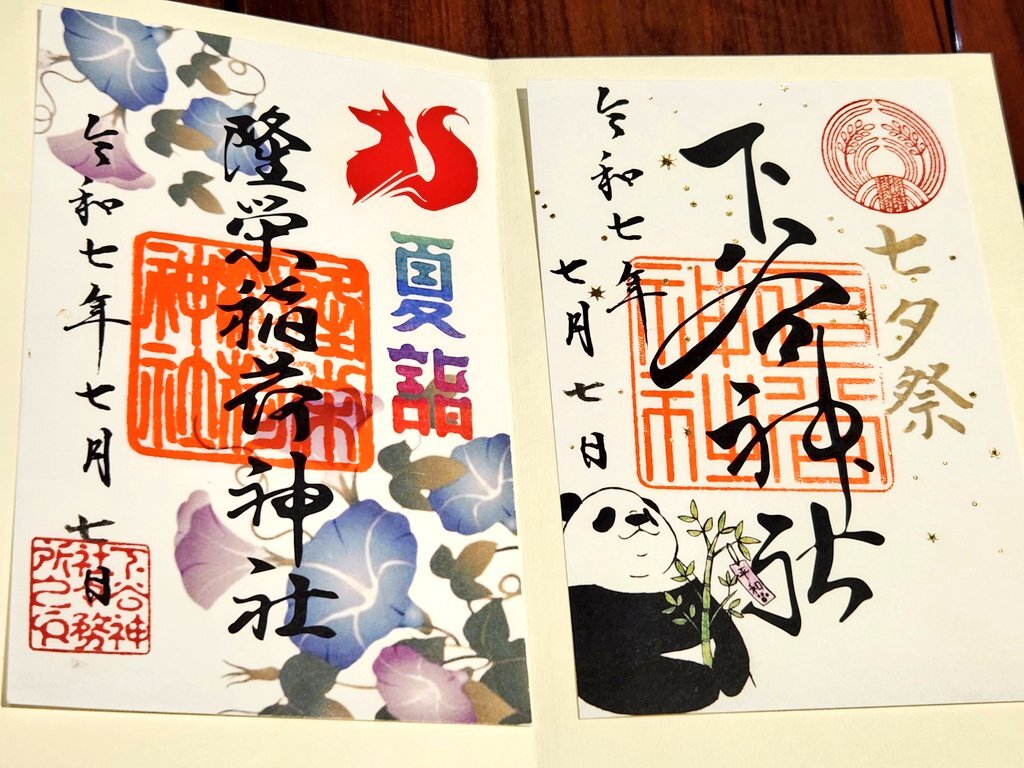 夏詣
隆栄稲荷神社
令和七年七月七日
神社
下谷神
社社務
所之印
七夕祭
下谷神社
令和七年
七月七日
平和